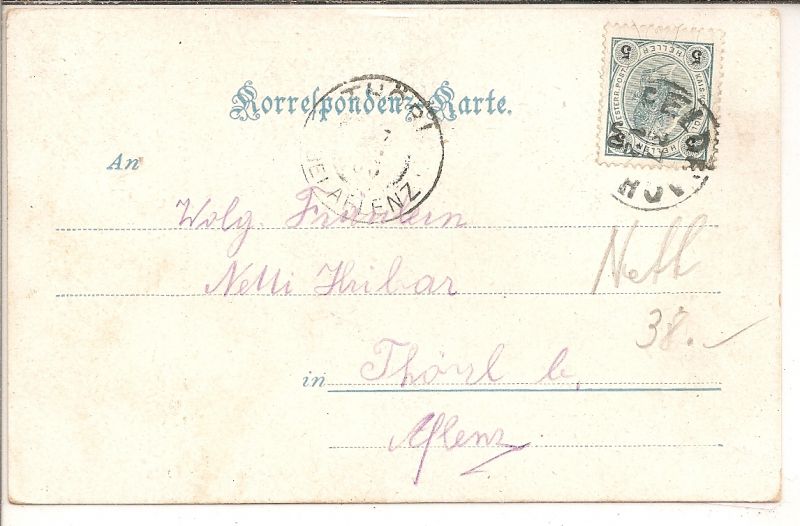 Korrespondenz-Karte.
5 HELLER 5
THÖRL
BEI AFLENZ
An
Wolg. Fräulein
Netti Hribar
Nett
38.-
in Thörl b.
Aflenz